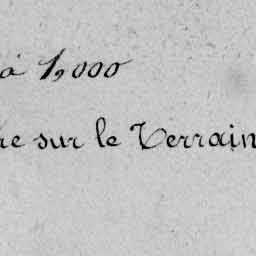 à 1,000
re sur le Terrain